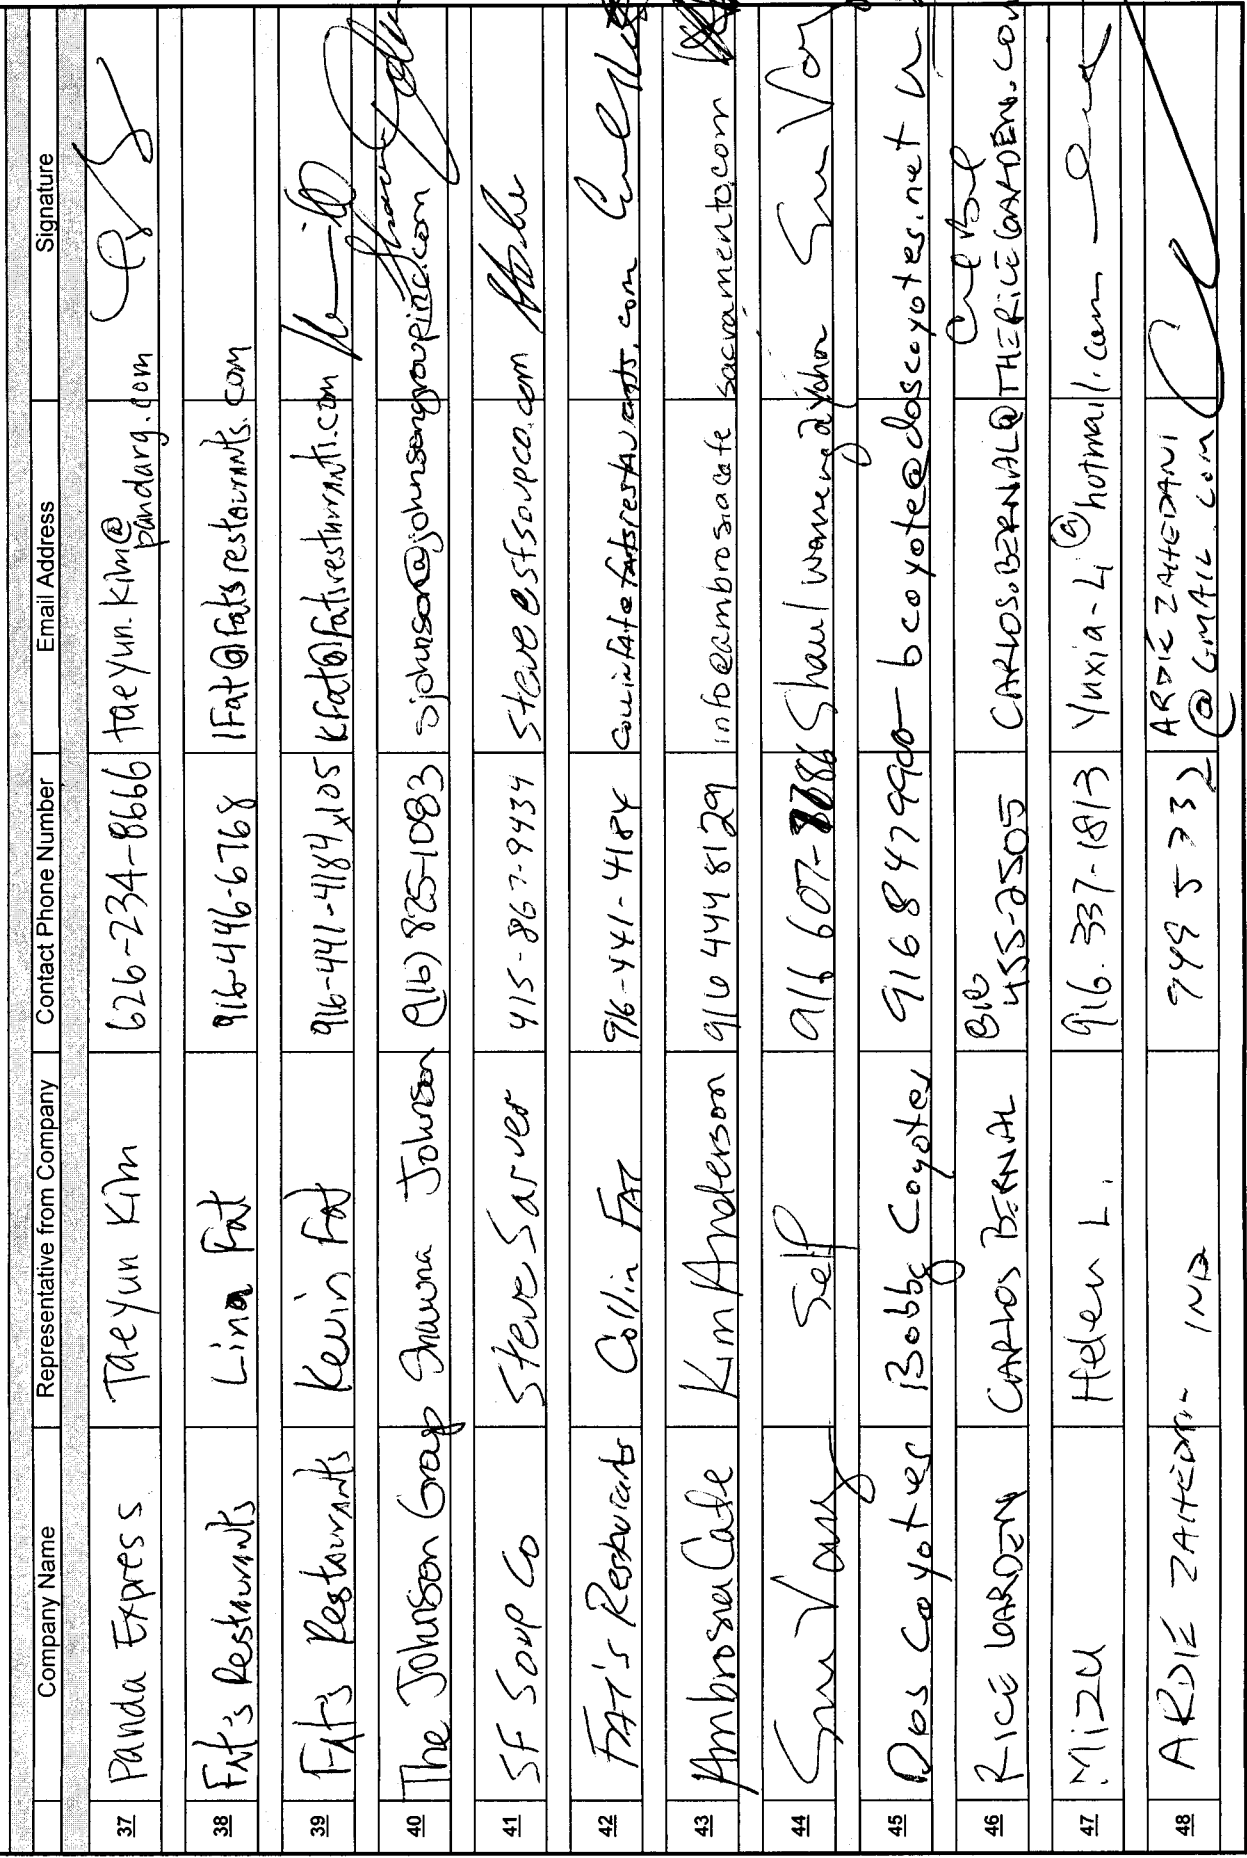 Company Name Representative from Company Contact Phone Number Email Address Signature
37 Panda Express Taeyun Kim 626-234-8666 taeyun.kim@pandarg.com
38 Fat's Restaurants Lina Fat 916-446-6768 lFat@fatsrestaurants.com
39 Fat's Restaurants Kevin Fat 916-441-4184 x105 kfat@fatsresturants.com
40 The Johnson Group Shawna Johnson (916) 825-1083 sjohnson@johnsongroupinc.com
41 SF Soup Co Steve Sarver 415-867-9434 steve@sfsoupco.com
42 FAT's Restaurants Collin FAT 916-441-4184 @fatsrestaurants.com
43 Ambrosia Cafe Kim Anderson 916 444 8129 info@ambrosiacafesacramento.com
44 Self 916 607-
45 Dos Coyotes Bobby Coyote 916 847 9900 - bcoyote@doscoyotes.net
46 RICE GARDEN CARLOS BERNAL 455-2505 CARLOS.BERNAL@THERICEGARDEN.COM
47 Mizu Helen L. 916.337-1813 Yuxia-Li@hotmail.com
48 ARDIE IND 949 5 ARDIE ZAHEDANI
@GMAIL.COM